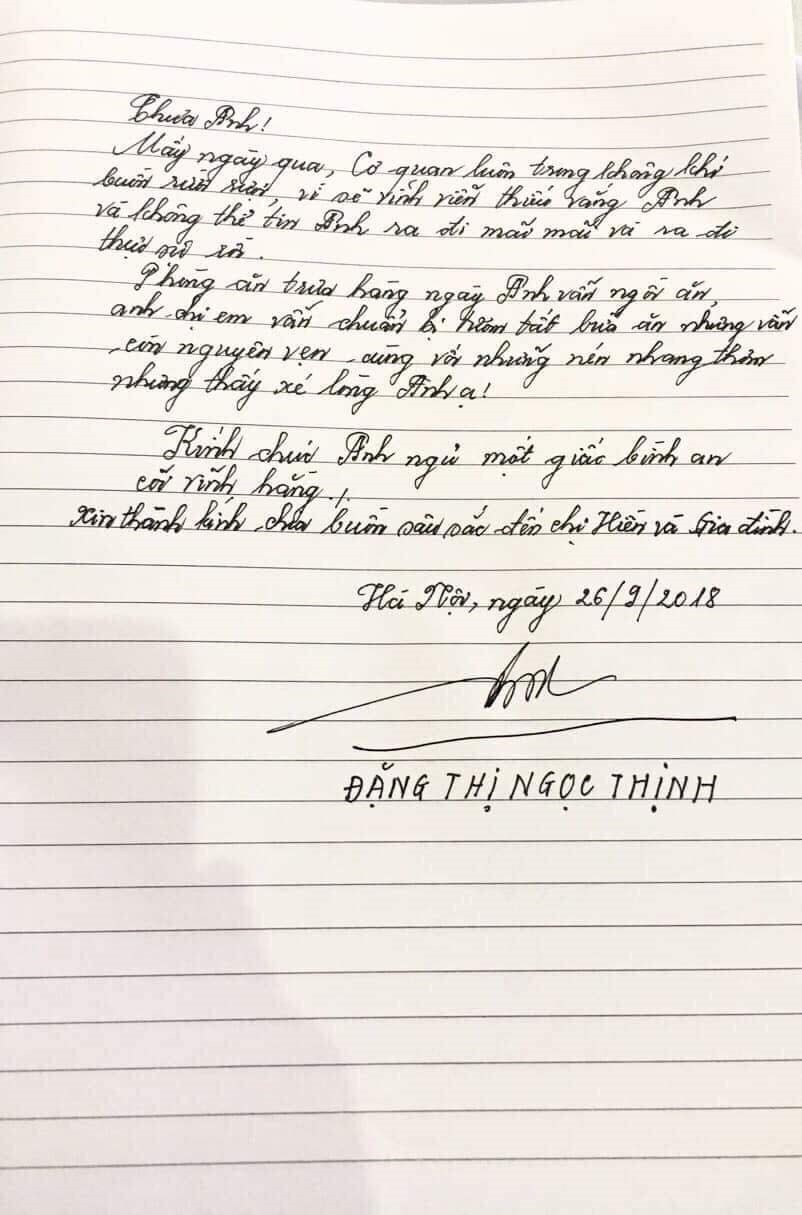 Thưa Anh!
Mấy ngày qua, Cơ quan luôn trong không khí
buồn rười rượi, vì sẽ vĩnh viễn thiếu vắng Anh
và không thể tin Anh ra đi mãi mãi và ra đi
thực sự rồi.
Phòng ăn trưa hàng ngày Anh vẫn ngồi ăn,
anh chị em vẫn chuẩn bị tươm tất bữa ăn nhưng vẫn
còn nguyên vẹn cùng với những nén nhang thơm
nhưng thấy xé lòng Anh ạ!
Kính chúc Anh ngủ một giấc bình an
cõi vĩnh hằng./.
Xin thành kính chia buồn sâu sắc đến chị Hiền và Gia đình.
Hà Nội, ngày 26/9/2018
ĐẶNG THỊ NGỌC THỊNH